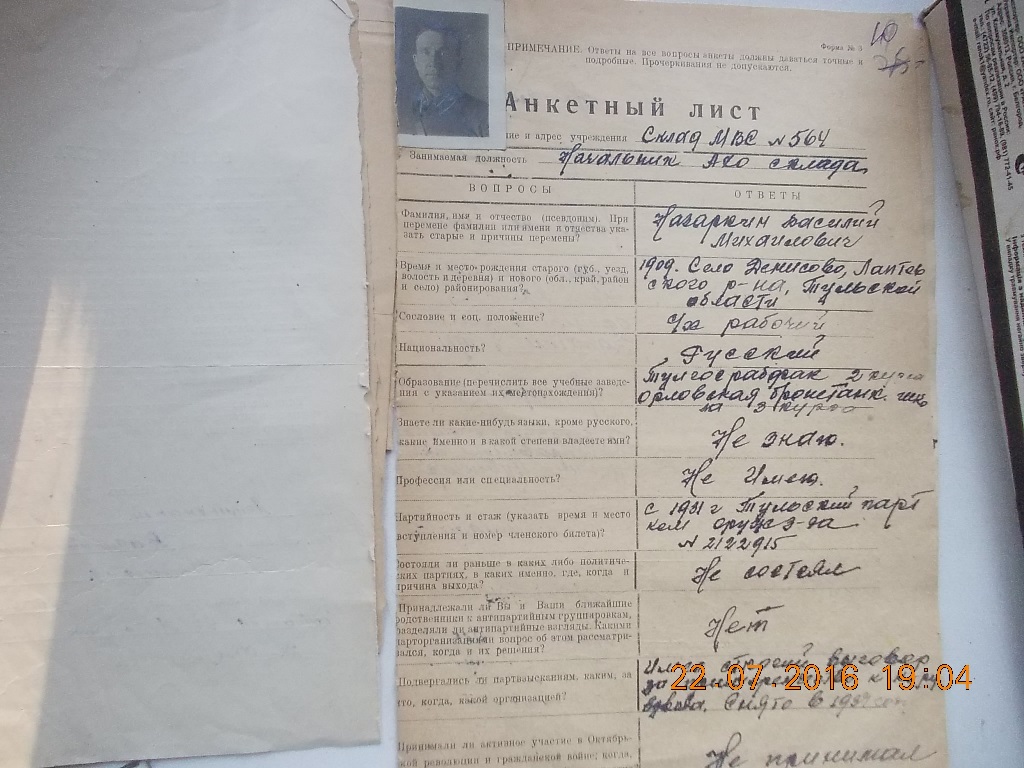 Форма № 3
10
ПРИМЕЧАНИЕ. Ответы на все вопросы анкеты должны даваться точные и
подробные. Прочеркивания не допускаются.
Анкетный лист
ие и адрес учреждения Склад МВС № 564
Занимаемая должность Начальник АХО склада
ВОПРОСЫ ОТВЕТЫ
Фамилия, имя и отчество (псевдоним). При
перемене фамилии или имени и отчества ука-
зать старые и причины перемены?
Назаркин Василий
Михайлович
Время и место рождения старого (губ., уезд,
волость и деревня) и нового (обл., край, район
и село) районирования?
1909. Село Денисово, Лаптев
ского р-на, Тульской
области
Сословие и соц. положение?
рабочий
Национальность?
Русский
Образование (перечислить все учебные заведе-
ния с указанием их местонахождения)?
2 курса
Орловская бронетанк. шко
ла 3 курса
Знаете ли какие-нибудь языки, кроме русского,
какие именно и в какой степени владеете ими?
Не знаю.
Профессия или специальность?
Не имею.
Партийность и стаж (указать время и место
вступления и номер членского билета)?
с 1931 г Тульский парт
ком оруж з-да
№ 2122915
Состояли ли раньше в каких либо политиче-
ских партиях, в каких именно, где, когда и
причина выхода?
Не состоял
Принадлежали ли Вы и Ваши ближайшие
родственники к антипартийным группировкам,
разделяли ли антипартийные взгляды. Какими
парторганизациями вопрос об этом рассматри-
вался, когда и их решения?
Нет
Подвергались ли партвзысканиям, каким, за
что, когда, какой организацией?
строгий выговор
Снято в
22 07 2016 19:04
Принимали ли активное участие в Октябрь-
ской революции и гражданской войне; когда,
Не принимал